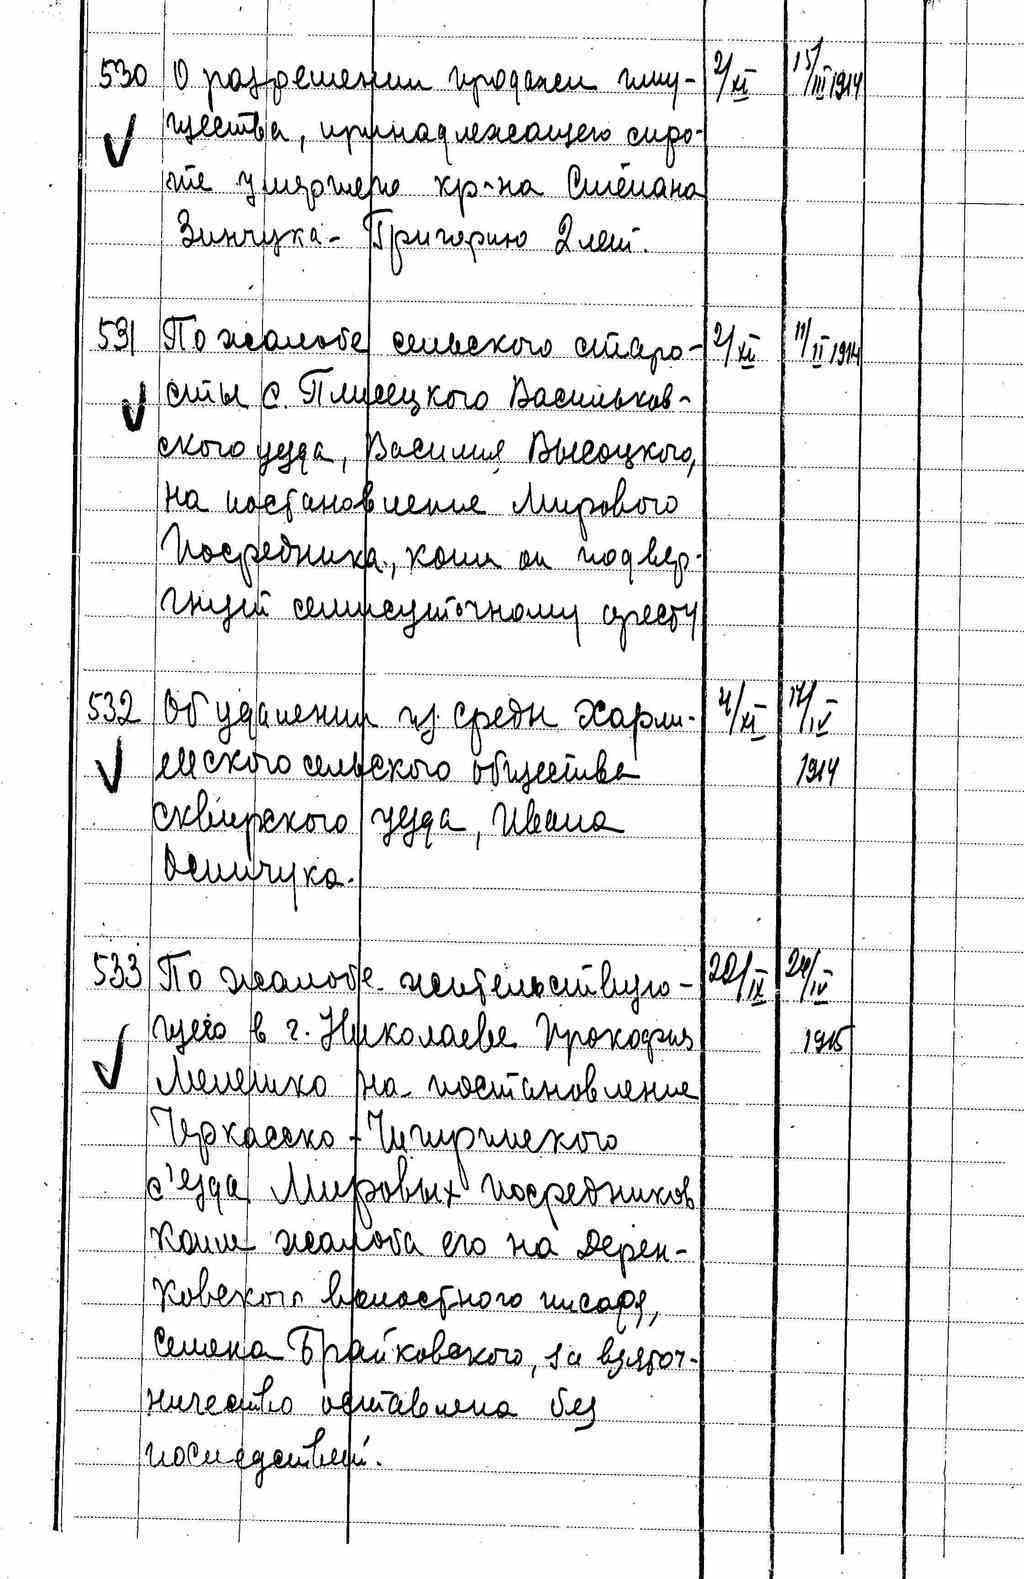 530 О разрешении продажи иму- 2/XI 15/III 1914
щества, принадлежащего сиро-
те умершего кр-на Степана
Зинчука - Григорию 2 лет.
531 По жалобе сельского старо- 2/XI 11/II 1914
сты с. Плисецкого Васильков-
ского уезда, Василия Высоцкого,
на постановление Мирового
Посредника, коим он подвер-
гнут семисуточному аресту
532 Об удалении из среды Харли- 4/XI 14/IV
еского сельского общества 1914
сквирского уезда, Ивана
Осипчука.
533 По жалобе жительствую- 22/IX 24/IV
щего в г. Николаеве Прокофия 1915
Мелешко на постановление
Черкасско-Чигиринского
с'езда Мировых посредников
коим жалоба его на Дерен-
ковского волостного писаря,
Семена Брайковского, за взяточ-
ничество оставлена без
последствий.